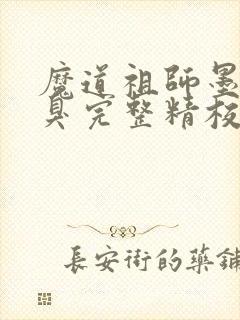 魔道祖師墨
臭完整精校
長安街的藥鋪